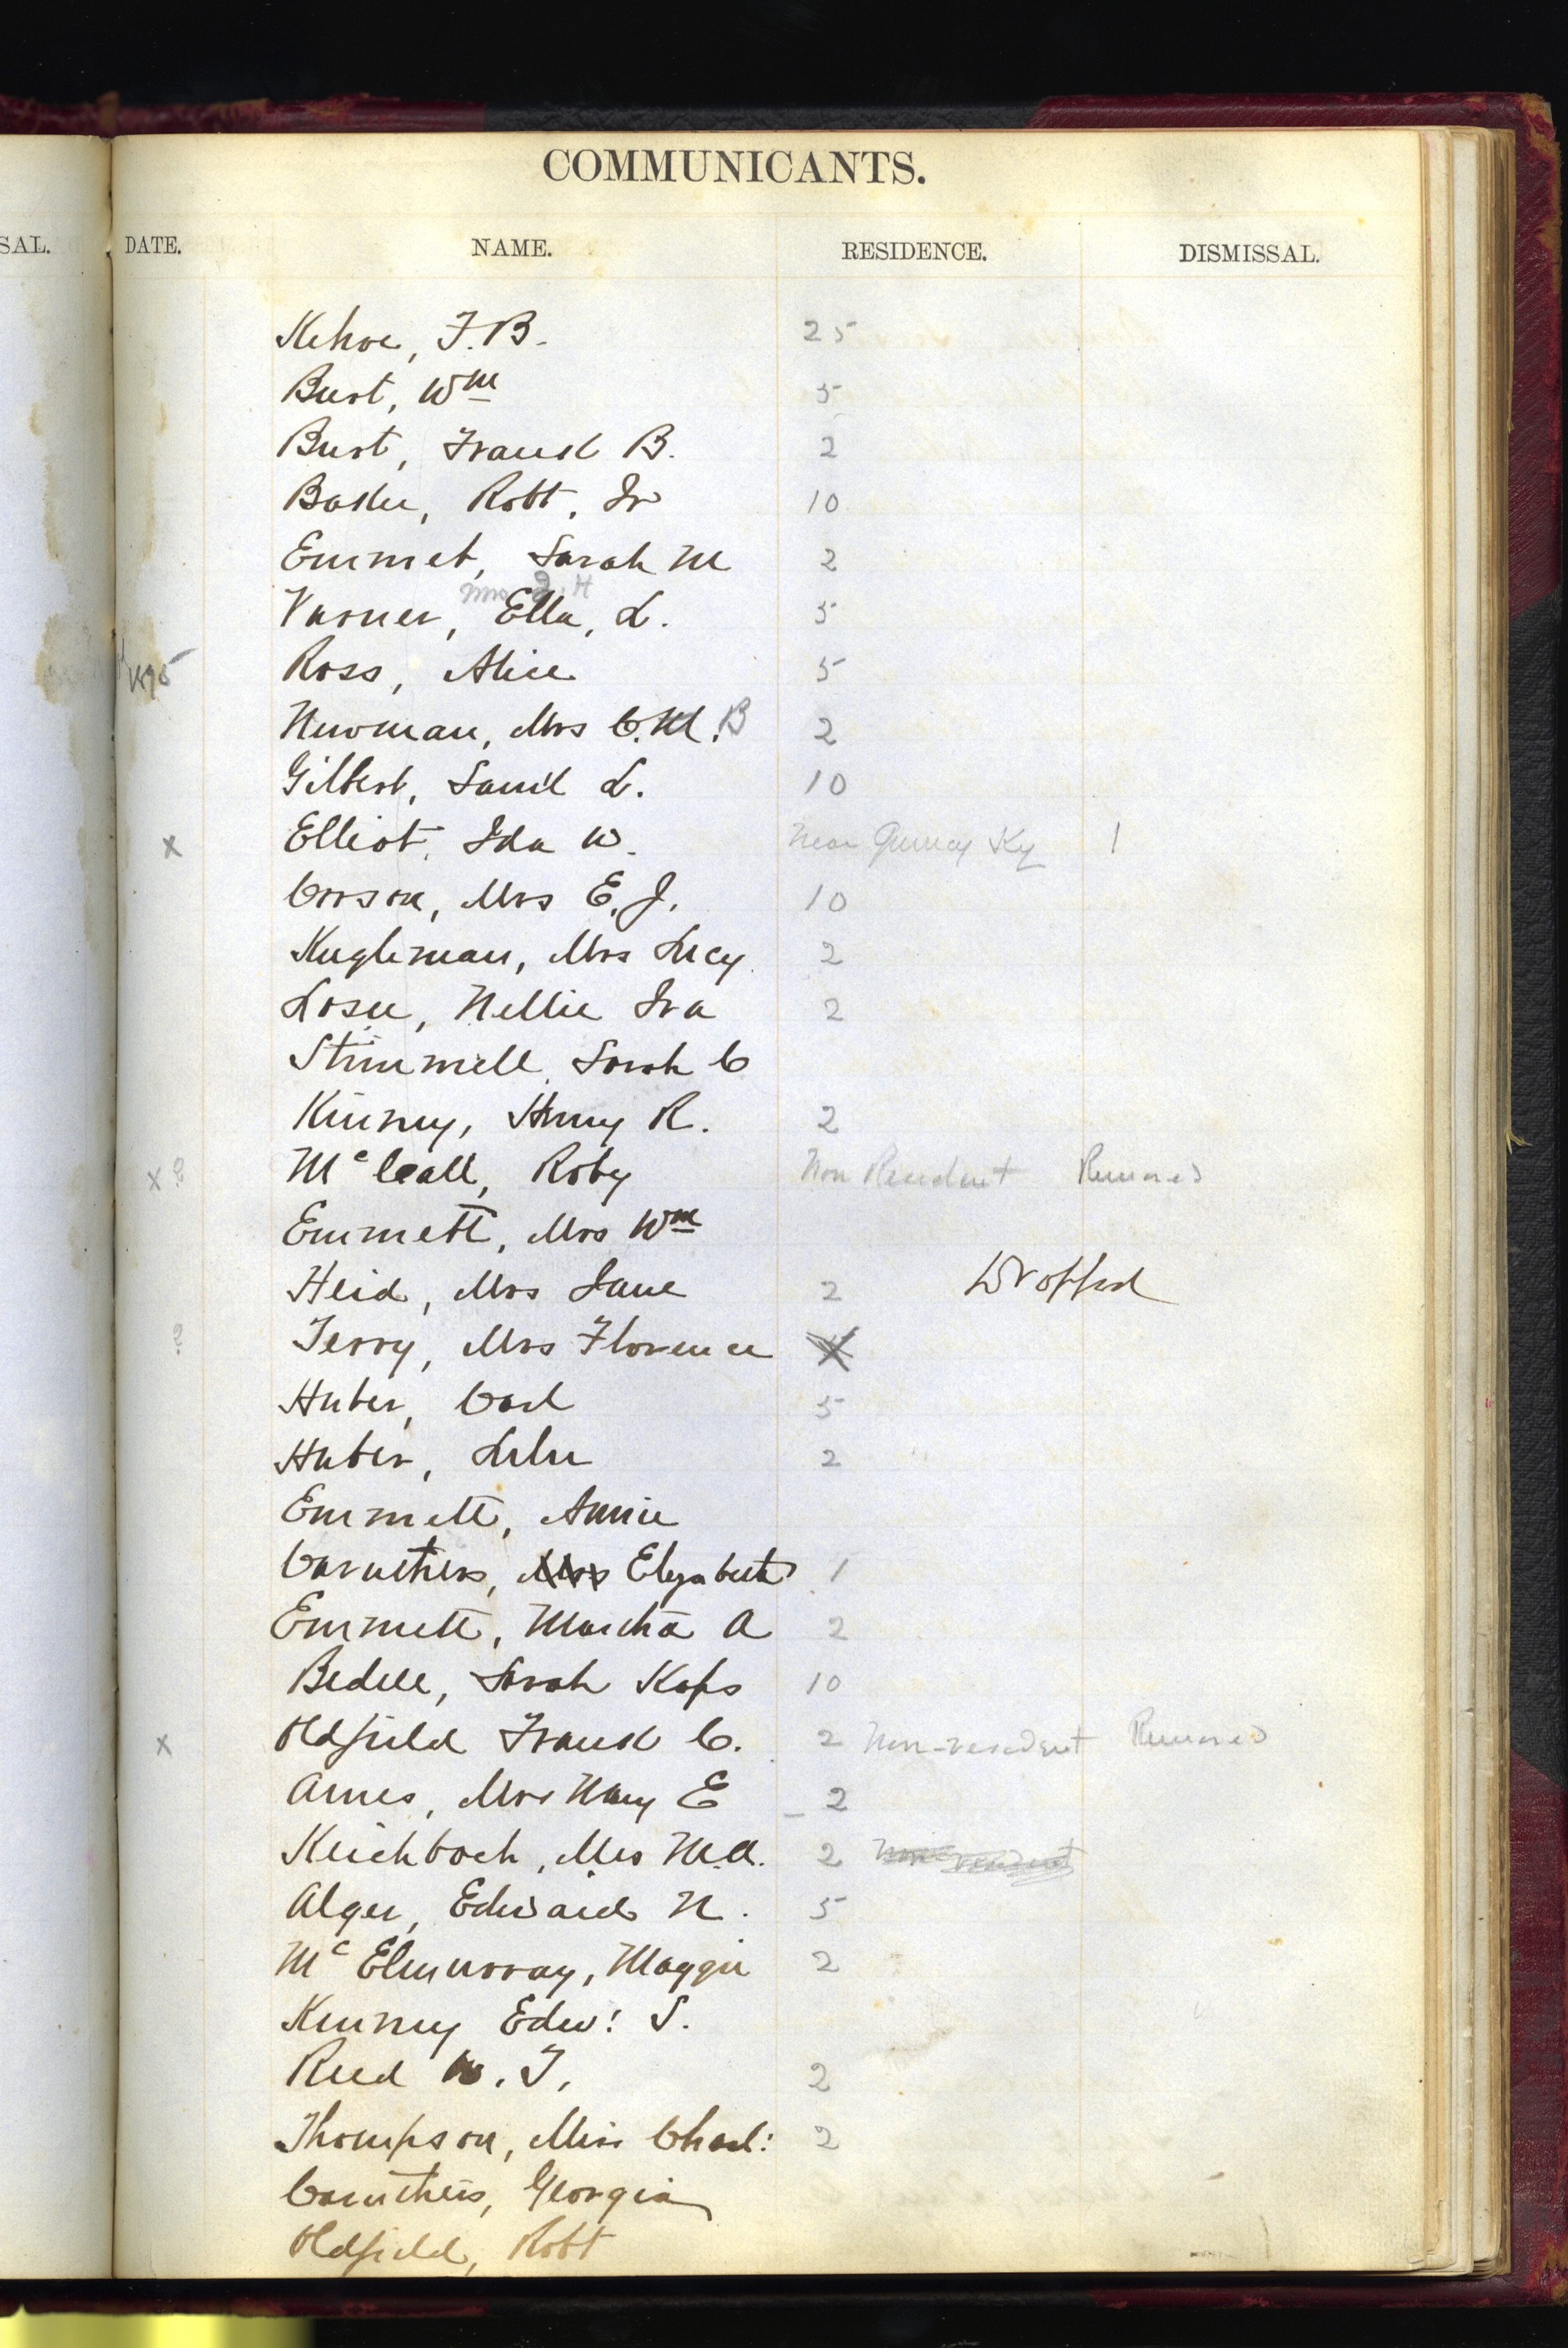 COMMUNICANTS.
SAL. DATE. NAME. RESIDENCE. DISMISSAL.
Kehoe, F. B. 25
Burt, Wm 5
Burt, Frank B. 2
Baker, Robt, Jr 10
Emmet, Sarah M 2
Mrs J. H
Varner, Ella, L. 5
1895 Ross, Alice 5
Newman, Mrs C. M. B 2
Gilbert, Saml L. 10
x Elliot, Ida W. Near Quincy Ky 1
Corson, Mrs E. J. 10
Kugleman, Mrs Lucy 2
Losee, Nellie Ira 2
Stimmell, Sarah C
Kinney, Henry R. 2
x ? Mc Call, Roby Non Resident Removed
Emmett, Mrs Wm
Heid, Mrs Jane 2 Dropped
? Terry, Mrs Florence
Huber, Carl 5
Huber, Lulu 2
Emmett, Annie
Caruthers, Mrs Elizabeth 1
Emmett, Martha A 2
Bedell, Sarah Kaps 10
x Oldfield Frank C. 2 Non-resident Removed
Ames, Mrs Mary E 2
Keichbach, Mrs M. A. 2 Non resident
Alger, Edward N. 5
Mc Elmurray, Maggie 2
Kinney Edw: S.
Reed W. T. 2
Thompson, Miss Charl: 2
Caruthers, Georgia
Oldfield, Robt